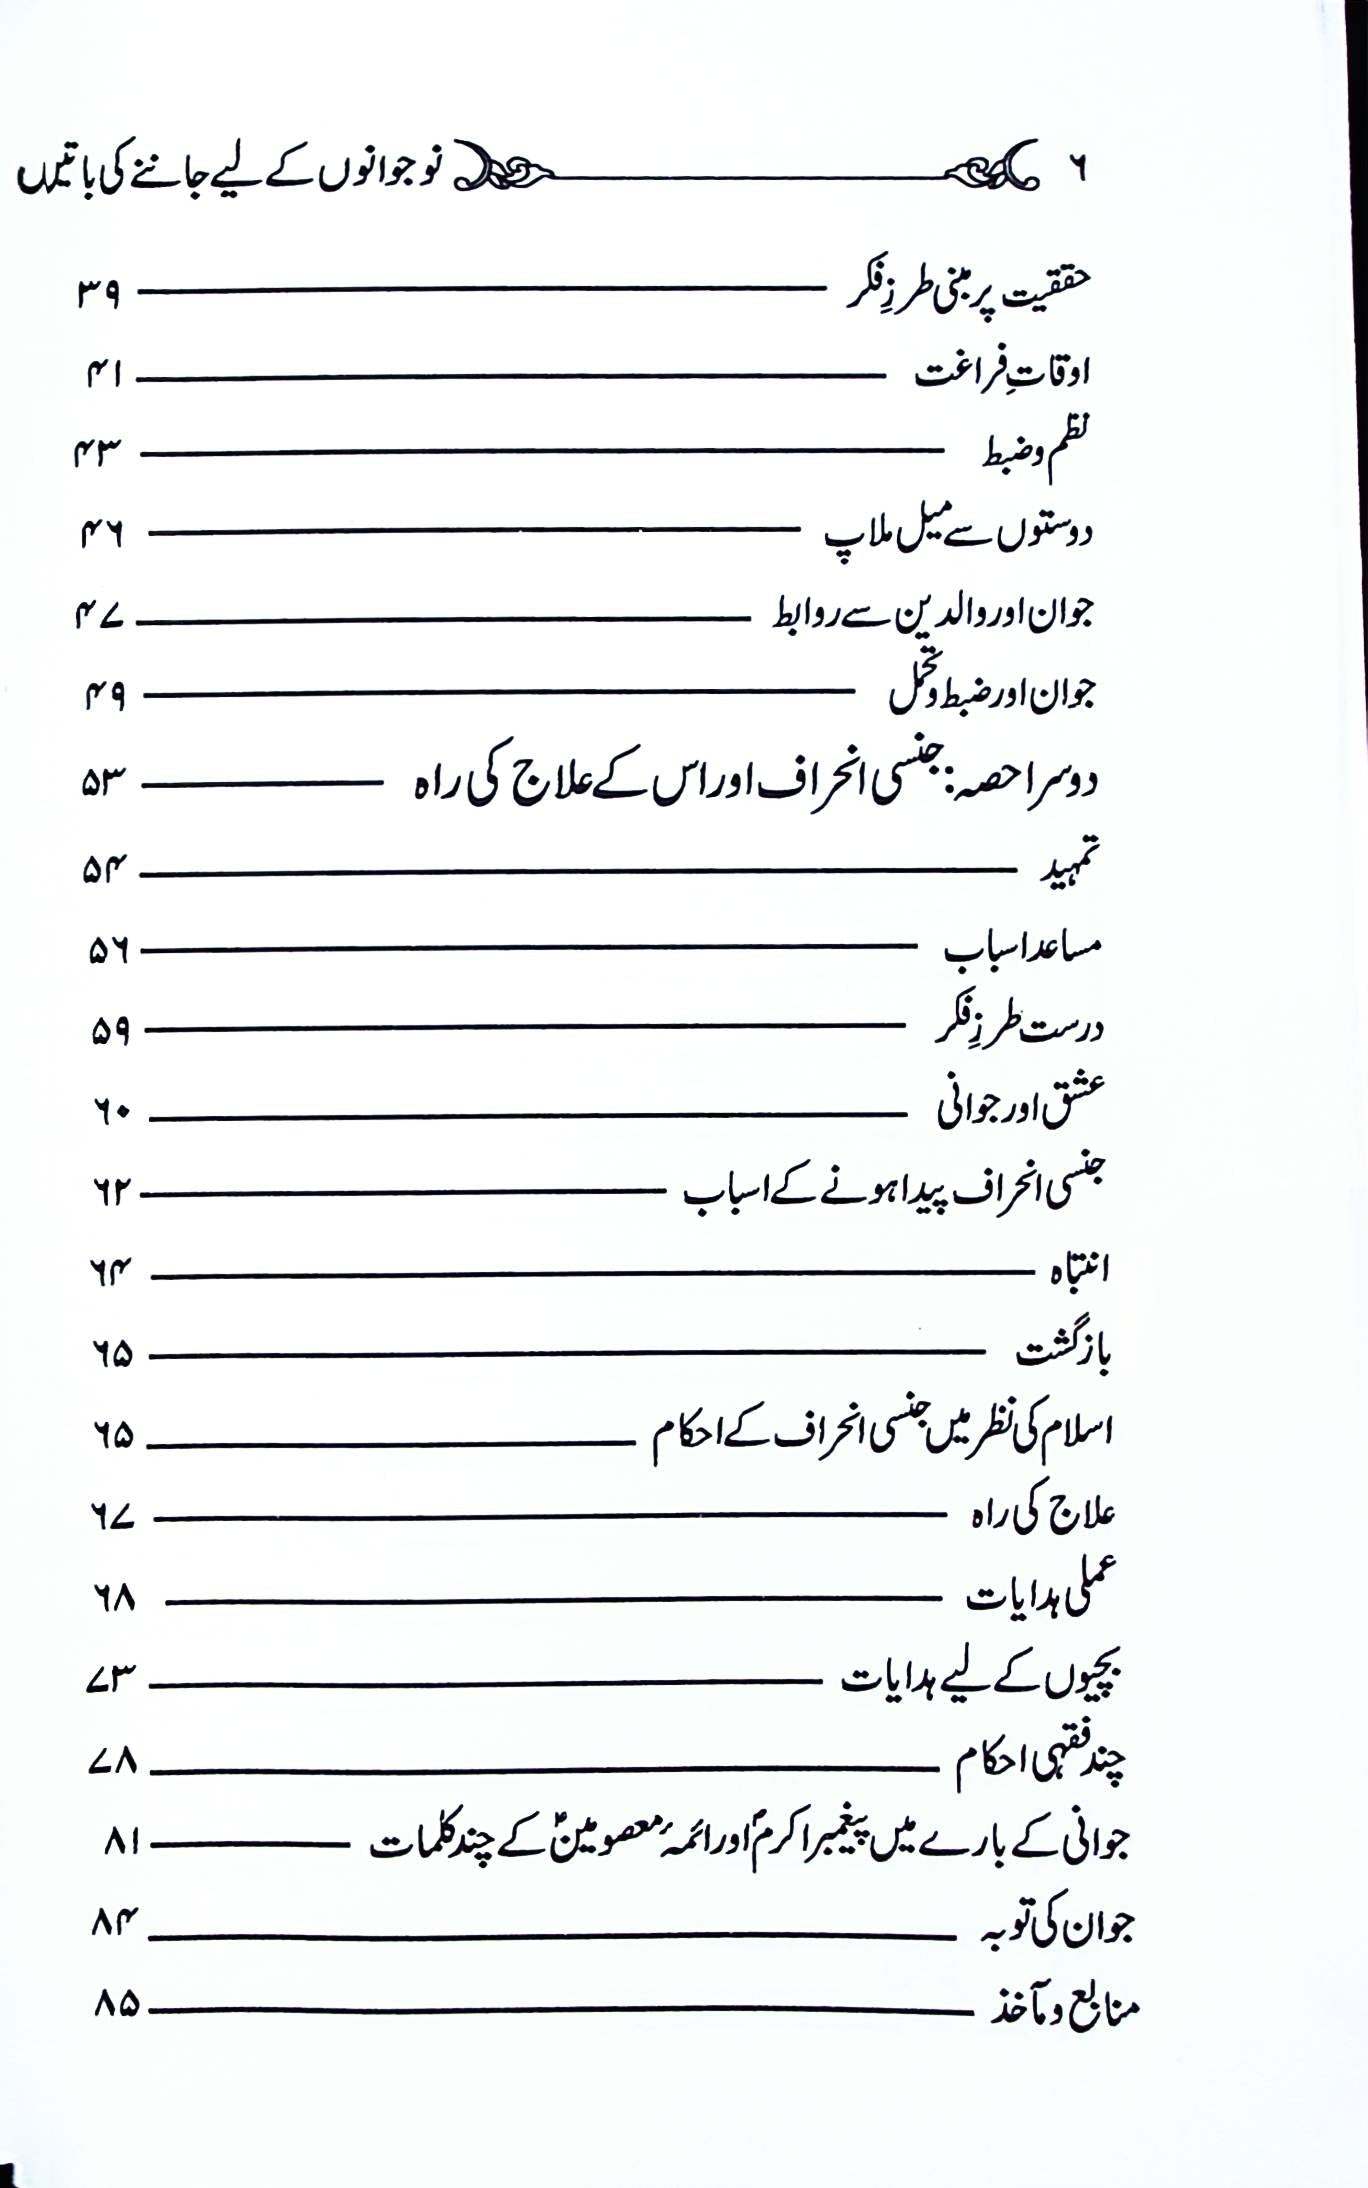 ۶ نوجوانوں کے لیے جاننے کی باتیں
حققیت پر مبنی طرزِ فکر ۳۹
اوقاتِ فراغت ۴۱
نظم و ضبط ۴۳
دوستوں سے میل ملاپ ۴۶
جوان اور والدین سے روابط ۴۷
جوان اور ضبط و تحمل ۴۹
دوسرا حصہ: جنسی انحراف اور اس کے علاج کی راہ ۵۳
تمہید ۵۴
مساعد اسباب ۵۶
درست طرزِ فکر ۵۹
عشق اور جوانی ۶۰
جنسی انحراف پیدا ہونے کے اسباب ۶۲
انتباہ ۶۴
بازگشت ۶۵
اسلام کی نظر میں جنسی انحراف کے احکام ۶۵
علاج کی راہ ۶۷
عملی ہدایات ۶۸
بچیوں کے لیے ہدایات ۷۳
چند فقہی احکام ۷۸
جوانی کے بارے میں پیغمبر اکرمؐ اور ائمۂ معصومینؑ کے چند کلمات ۸۱
جوان کی توبہ ۸۴
منابع و مآخذ ۸۵